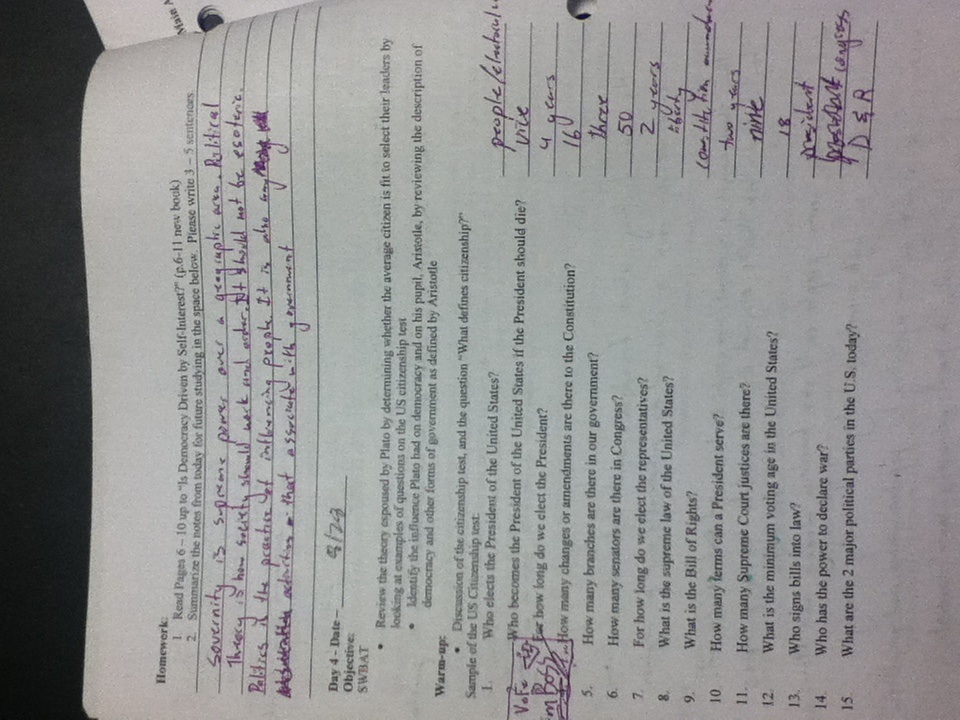 Main A
Homework:
1. Read Pages 6 – 10 up to "Is Democracy Driven by Self-Interest?" (p.6-11 new book)
2. Summarize the notes from today for future studying in the space below. Please write 3 – 5 sentences.
Sovernity is supreme power over a geographic area. Political
Theory is how society should work and order. It should not be esoteric.
Politics is the practice of influencing people. It is also any
activities that associate with government
Day 4 - Date – 8/28
Objective:
SWBAT
• Review the theory espoused by Plato by determining whether the average citizen is fit to select their leaders by
looking at examples of questions on the US citizenship test
• Identify the influence Plato had on democracy and on his pupil, Aristotle, by reviewing the description of
democracy and other forms of government as defined by Aristotle
Warm-up:
• Discussion of the citizenship test, and the question "What defines citizenship?"
Sample of the US Citizenship test:
1. Who elects the President of the United States? people/electoral
Who becomes the President of the United States if the President should die? vice
Vote
For how long do we elect the President? 4 years
Boss
How many changes or amendments are there to the Constitution? 16
5. How many branches are there in our government? three
6. How many senators are there in Congress? 50
7. For how long do we elect the representatives? 2 years
8. What is the supreme law of the United States? liberty
9. What is the Bill of Rights? constitution
10 How many terms can a President serve? two years
11. How many Supreme Court justices are there? nine
12. What is the minimum voting age in the United States? 18
13. Who signs bills into law? president
14. Who has the power to declare war? congress
15. What are the 2 major political parties in the U.S. today? D & R